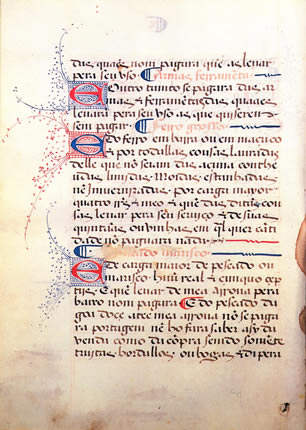 das quaes nom pagara que as leuar
pera seu vso. Armas ferramẽta.
E Outro tanto se pagara das ar
mas & ferramẽtas das quaees
leuara pera seu vso as que quiserem
sem pagar. Ferro grosso.
E do ferro em barra ou em maçuco
& por todallas cousas lauradas
delle que nõ seiam das acima conthe
udas limadas. Moidas, estanhadas
nẽ Inuernizadas. por carga mayor
quatro rrs & meo & que das ditas cou
sas leuar pera seu seruiço & de suas
quintaãs ou vinhas em qual quer cãti
dade nõ pagara nada.
pescado marisco
E de carga maior de pescado ou
marisco hũu real & cimquo çep
tijs. E que leuar de mea arroua pera
baixo nom pagara E do pescado da
goa doçe atee mea arroua nõ se paga
ra portagem nẽ ho fara saber asy da
venda como da cõpra sendo somẽte
truitas bordallos ou bogas & di pera